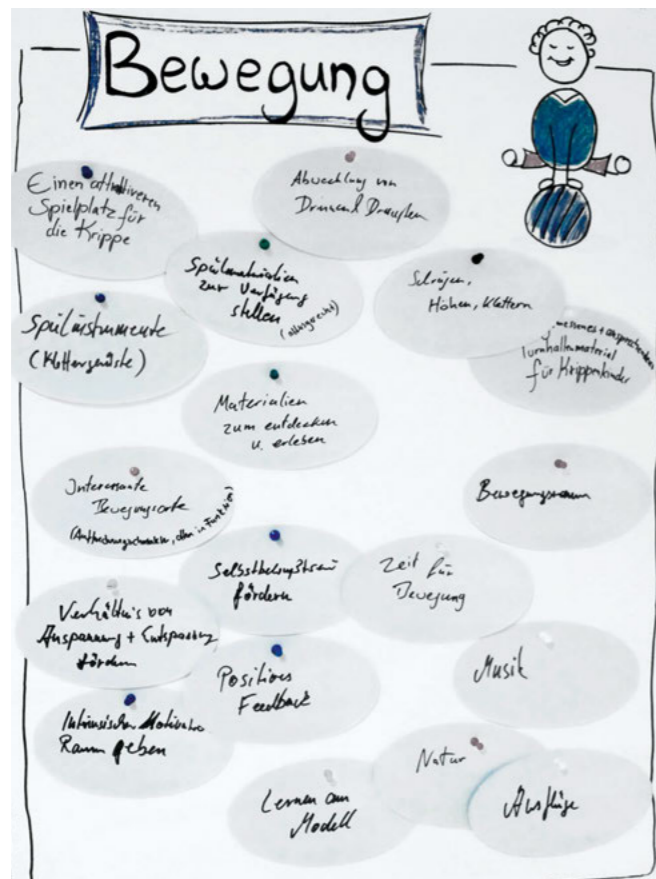 Bewegung
Einen attraktiveren
Spielplatz für
die Krippe
Abwechlung von
Drin und Draußen
Spielmaterialien
zur Verfügung
stellen
Schrägen,
Höhen, Klettern
Spielinstrumente
(Klettergerüste)
Turnhallenmaterial
für Krippenkinder
Materialien
zum entdecken
u. erleben
Interessante
Bewegungsorte
Bewegungsraum
Selbstbewußtsein
fördern
Zeit für
Bewegung
Verhältnis von
Anspannung + Entspannung
fördern
Positives
Feedback
Musik
Intrinsischer Motivation
Raum geben
Natur
Lernen am
Modell
Ausflüge